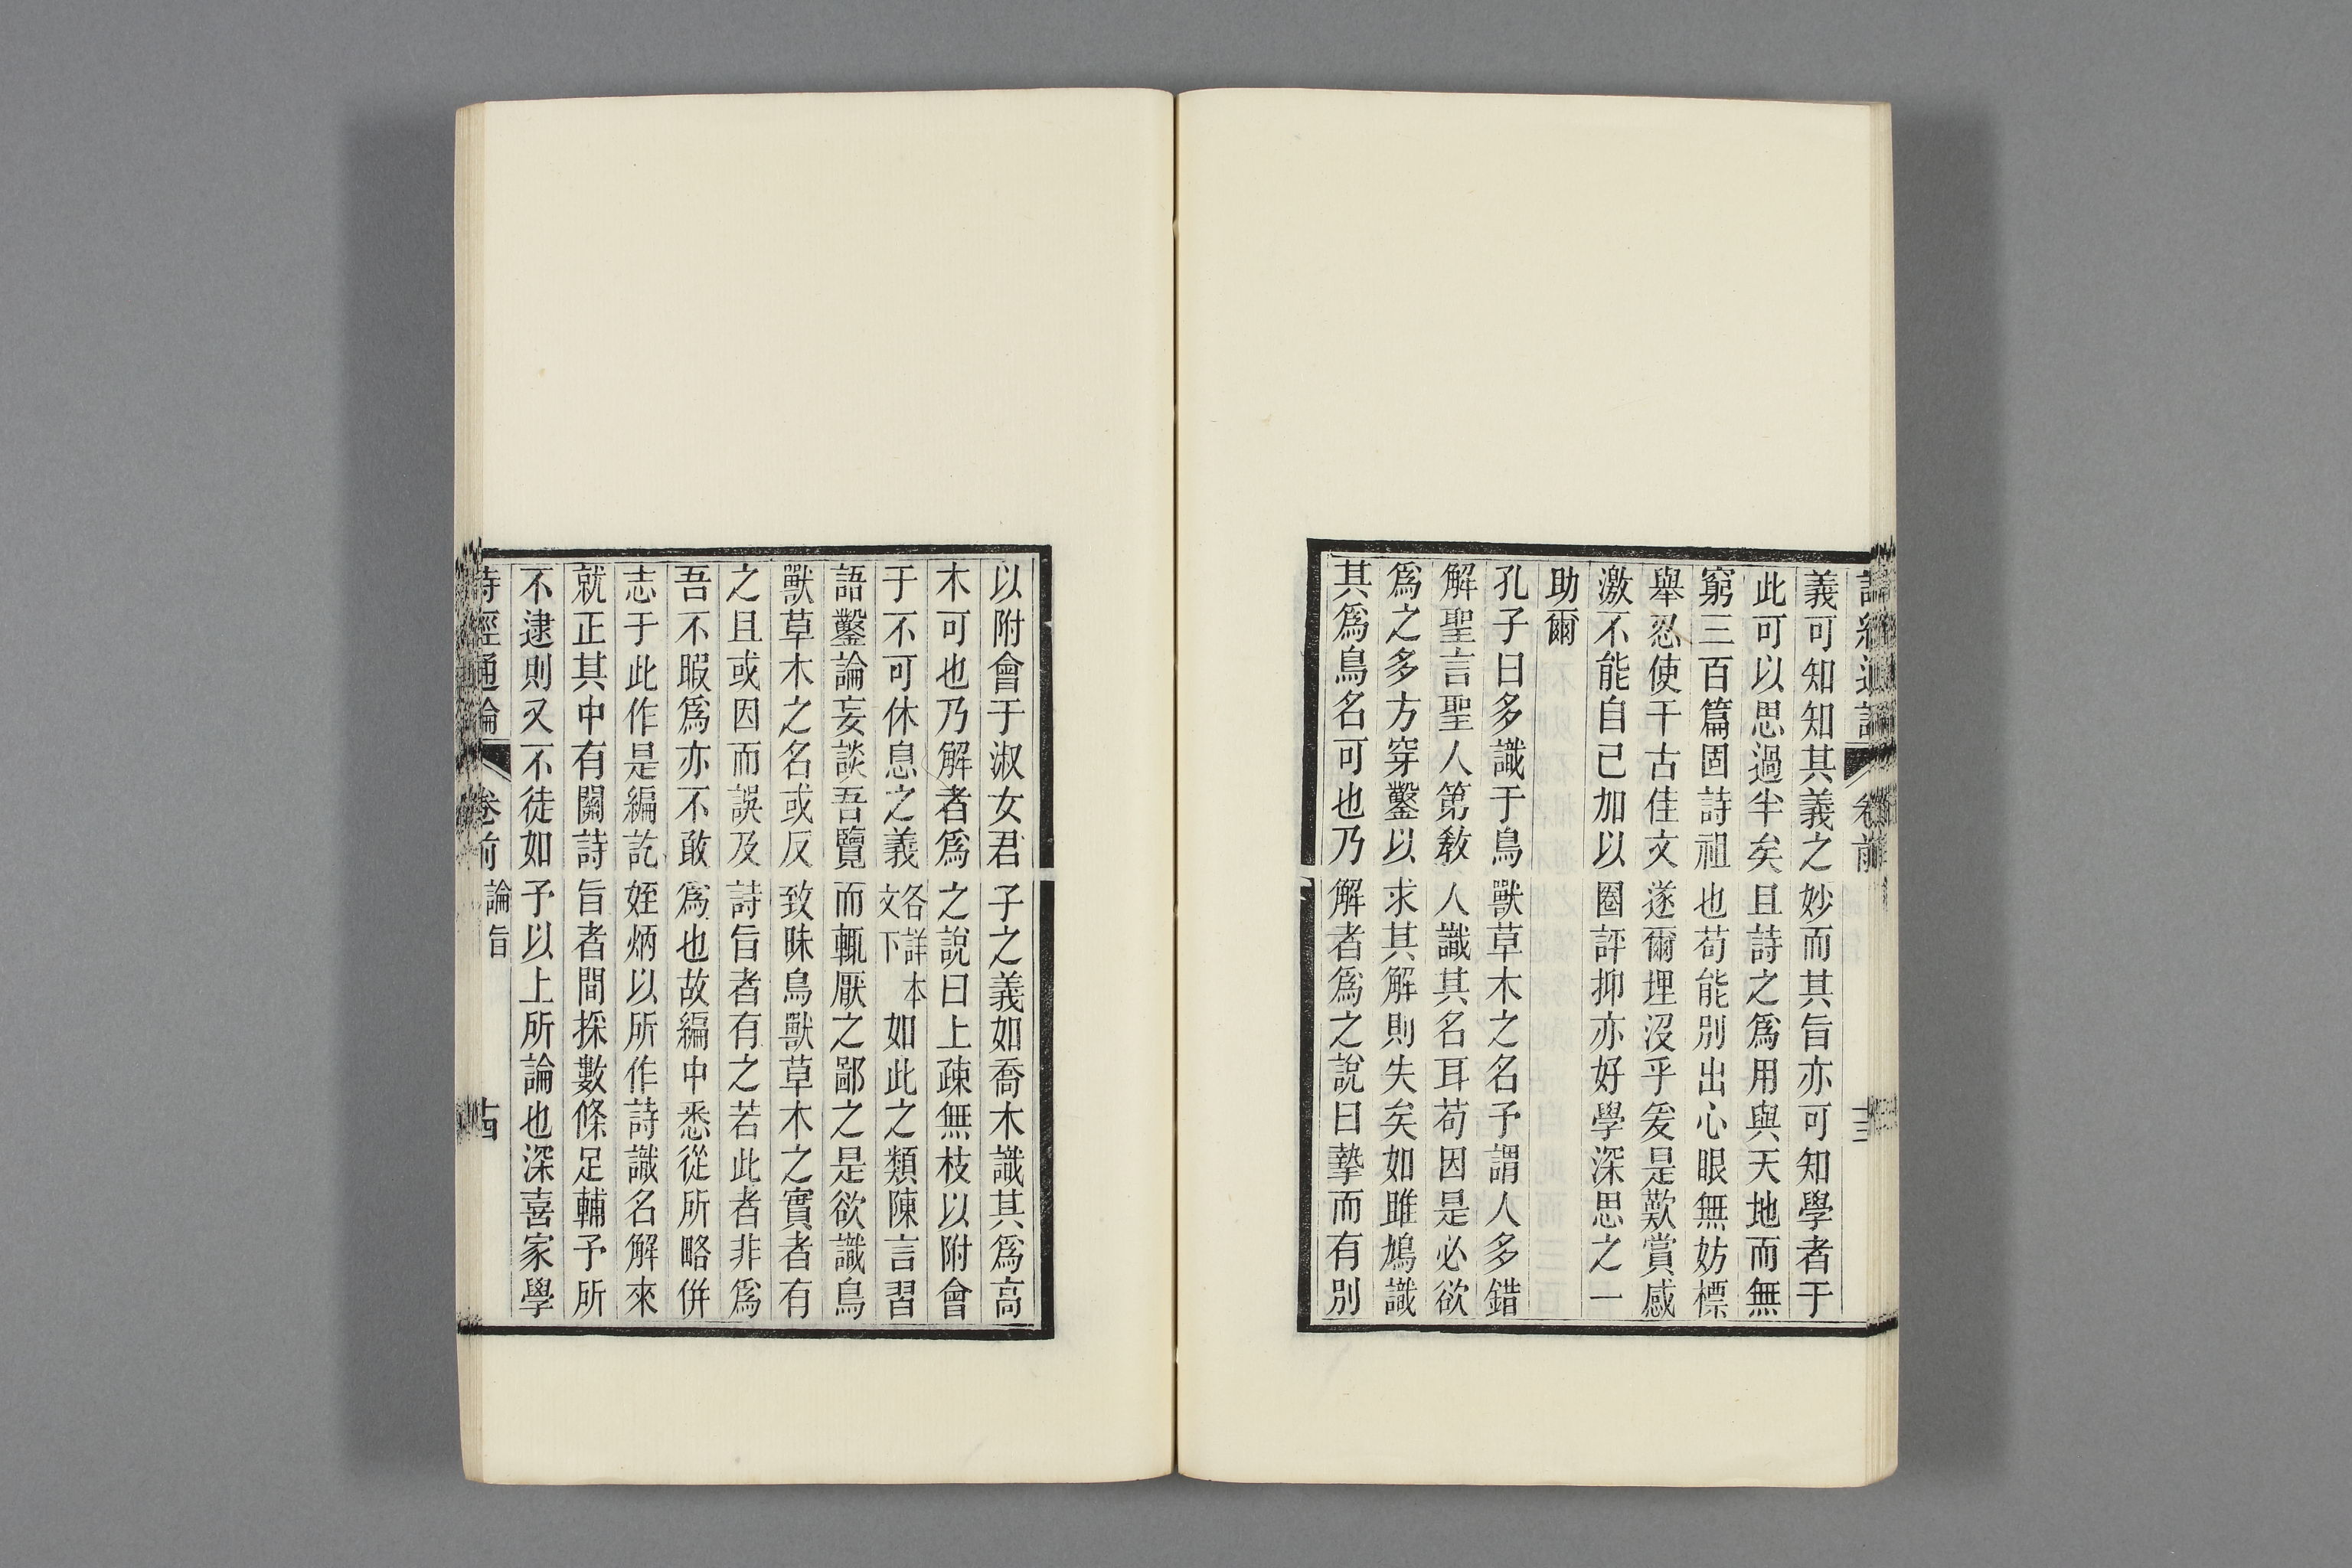 詩經通論 卷前
義可知知其義之妙而其旨亦可知學者于
此可以思過半矣且詩之爲用與天地而無
窮三百篇固詩祖也苟能別出心眼無妨標
舉忍使千古佳文遂爾埋沒乎爰是歎賞感
激不能自已加以圈評抑亦好學深思之一
助爾
孔子曰多識于鳥獸草木之名予謂人多錯
解聖言聖人第教人識其名耳苟因是必欲
爲之多方穿鑿以求其解則失矣如雎鳩識
其爲鳥名可也乃解者爲之說曰摯而有別
以附會于淑女君子之義如喬木識其爲高
木可也乃解者爲之說曰上疎無枝以附會
于不可休息之義各詳本文下如此之類陳言習
語鑿論妄談吾覽而輒厭之鄙之是欲識鳥
獸草木之名或反致昧鳥獸草木之實者有
之且或因而誤及詩旨者有之若此者非爲
吾不暇爲亦不敢爲也故編中悉從所略併
志于此作是編訖姪炳以所作詩識名解來
就正其中有關詩旨者間採數條足輔予所
不逮則又不徒如予以上所論也深喜家學
詩經通論 卷前 論旨 十四